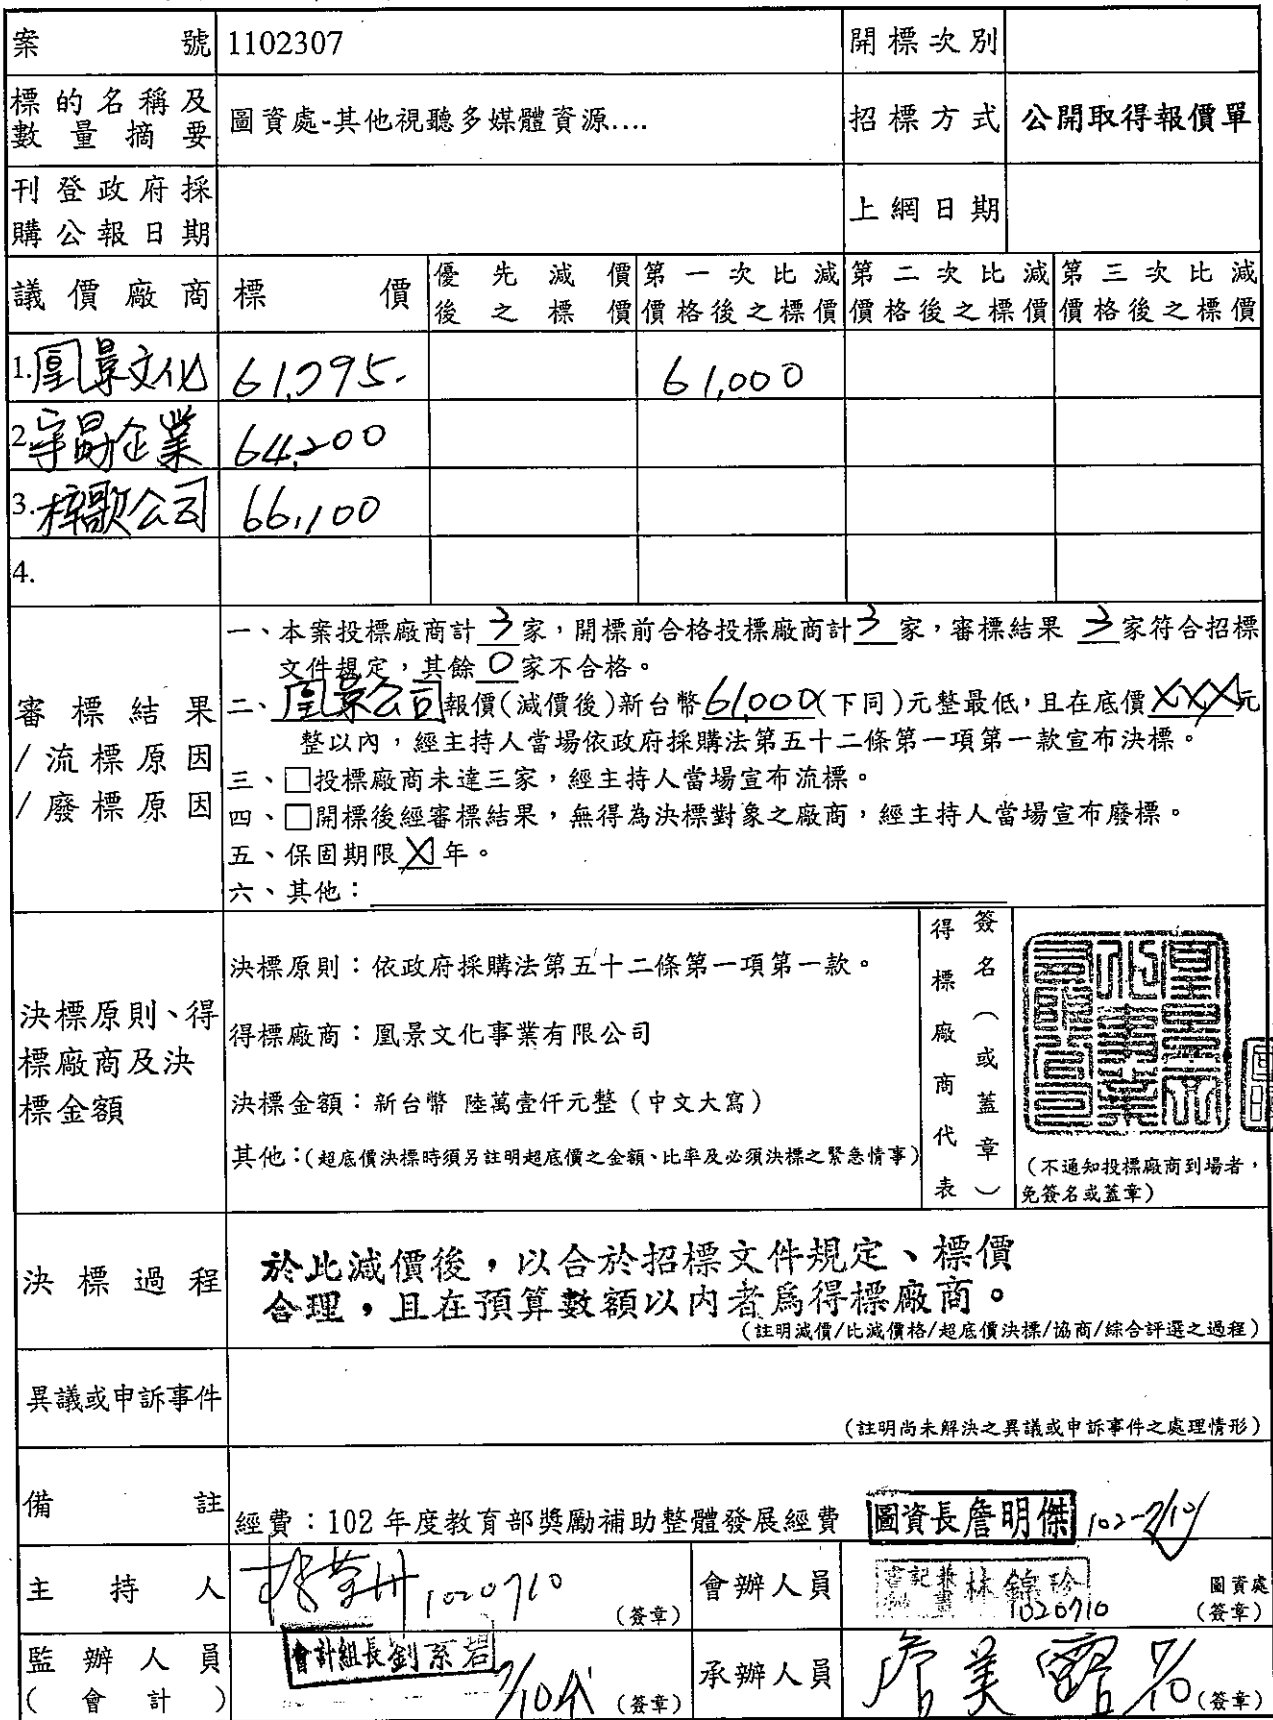 案號 1102307 開標次別
標的名稱及數量摘要 圖資處-其他視聽多媒體資源.... 招標方式 公開取得報價單
刊登政府採購公報日期 上網日期
議價廠商 標價 優先減價後之標價 第一次比減價格後之標價 第二次比減價格後之標價 第三次比減價格後之標價
1.凰景文化 61,295. 61,000
2.宇勗企業 64,200
3.梓歌公司 66,100
4.
審標結果/流標原因/廢標原因
一、本案投標廠商計 3 家，開標前合格投標廠商計 3 家，審標結果 3 家符合招標
文件規定，其餘 0 家不合格。
二、凰景公司報價(減價後)新台幣 61,000(下同)元整最低，且在底價 XXX 元
整以內，經主持人當場依政府採購法第五十二條第一項第一款宣布決標。
三、□投標廠商未達三家，經主持人當場宣布流標。
四、□開標後經審標結果，無得為決標對象之廠商，經主持人當場宣布廢標。
五、保固期限 X 年。
六、其他：
決標原則、得標廠商及決標金額
決標原則：依政府採購法第五十二條第一項第一款。
得標廠商：凰景文化事業有限公司
決標金額：新台幣 陸萬壹仟元整（中文大寫）
其他：(超底價決標時須另註明超底價之金額、比率及必須決標之緊急情事)
得標廠商代表簽名（或蓋章）
凰景文化事業有限公司
（不通知投標廠商到場者，
免簽名或蓋章）
決標過程
於比減價後，以合於招標文件規定、標價
合理，且在預算數額以內者為得標廠商。
（註明減價/比減價格/超底價決標/協商/綜合評選之過程）
異議或申訴事件
（註明尚未解決之異議或申訴事件之處理情形）
備註 經費：102 年度教育部獎勵補助整體發展經費 圖資長詹明傑 102-7/10
主持人 1020710 （簽章） 會辦人員 書記兼 林錦珍 1020710 圖資處（簽章）
監辦人員（會計） 會計組長劉 7/10 （簽章） 承辦人員 詹美 7/10 （簽章）